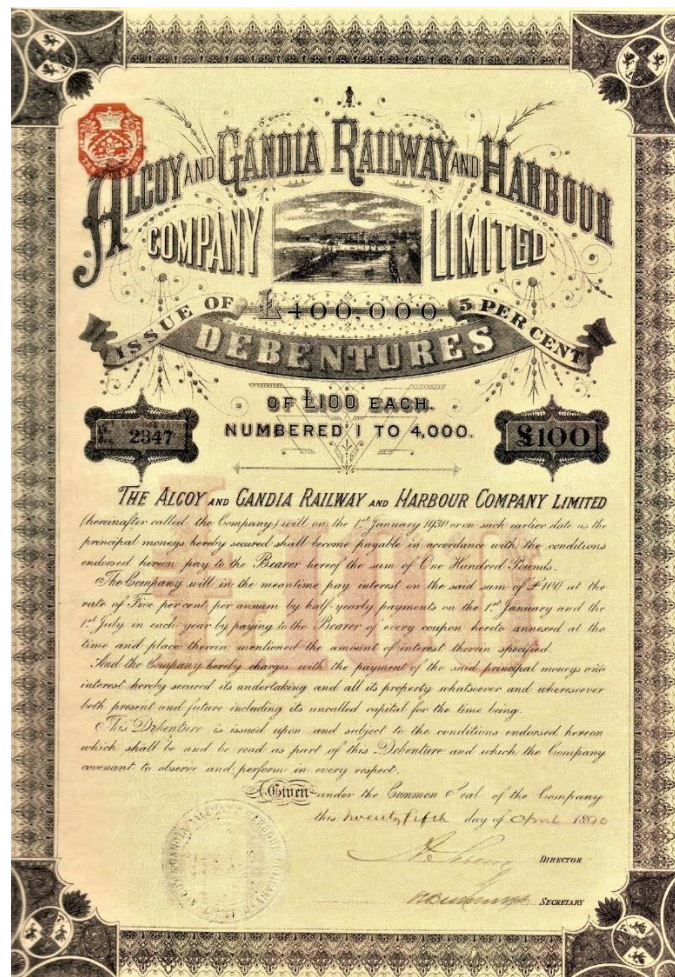 ALCOY AND GANDIA RAILWAY AND HARBOUR
COMPANY LIMITED
ISSUE OF £400,000 5 PER CENT
DEBENTURES
OF £100 EACH.
NUMBERED 1 TO 4,000.
2347
£100
THE ALCOY AND GANDIA RAILWAY AND HARBOUR COMPANY LIMITED
(hereinafter called the Company) will on the 1st January 1930 or on such earlier date as the
principal moneys hereby secured shall become payable in accordance with the conditions
endorsed hereon pay to the Bearer hereof the sum of One Hundred Pounds.
The Company will in the meantime pay interest on the said sum of £100 at the
rate of Five per cent per annum by half-yearly payments on the 1st January and the
1st July in each year by paying to the Bearer of every coupon hereto annexed at the
time and place therein mentioned the amount of interest therein specified.
And the Company hereby charges with the payment of the said principal moneys and
interest hereby secured its undertaking and all its property whatsoever and wheresoever
both present and future including its uncalled capital for the time being.
This Debenture is issued upon and subject to the conditions endorsed hereon
which shall be and be read as part of this Debenture and which the Company
covenant to observe and perform in every respect.
Given under the Common Seal of the Company
this twenty fifth day of April 1890
DIRECTOR
SECRETARY